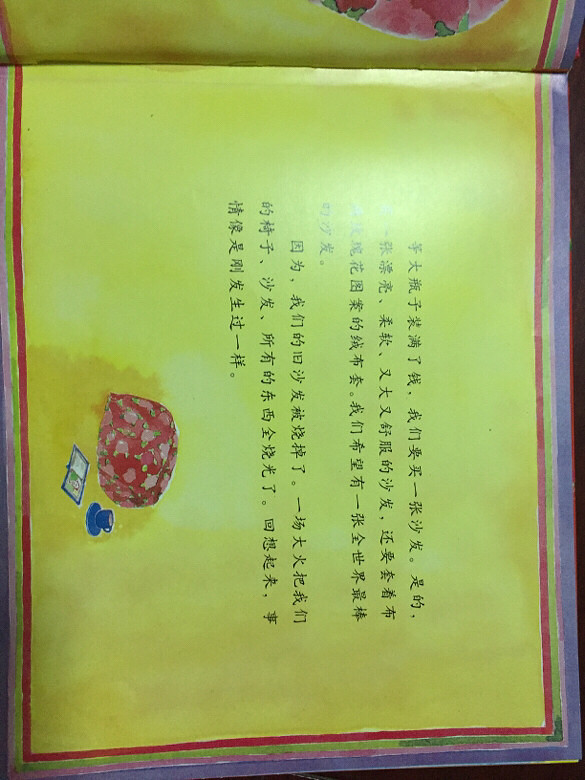 等大瓶子装满了钱，我们要买一张沙发。是的，
一张漂亮、柔软、又大又舒服的沙发，还要套着布
玫瑰花图案的绒布套。我们希望有一张全世界最棒
的沙发。
因为，我们的旧沙发被烧掉了。一场大火把我们
的椅子、沙发、所有的东西全烧光了。回想起来，事
情像是刚发生过一样。